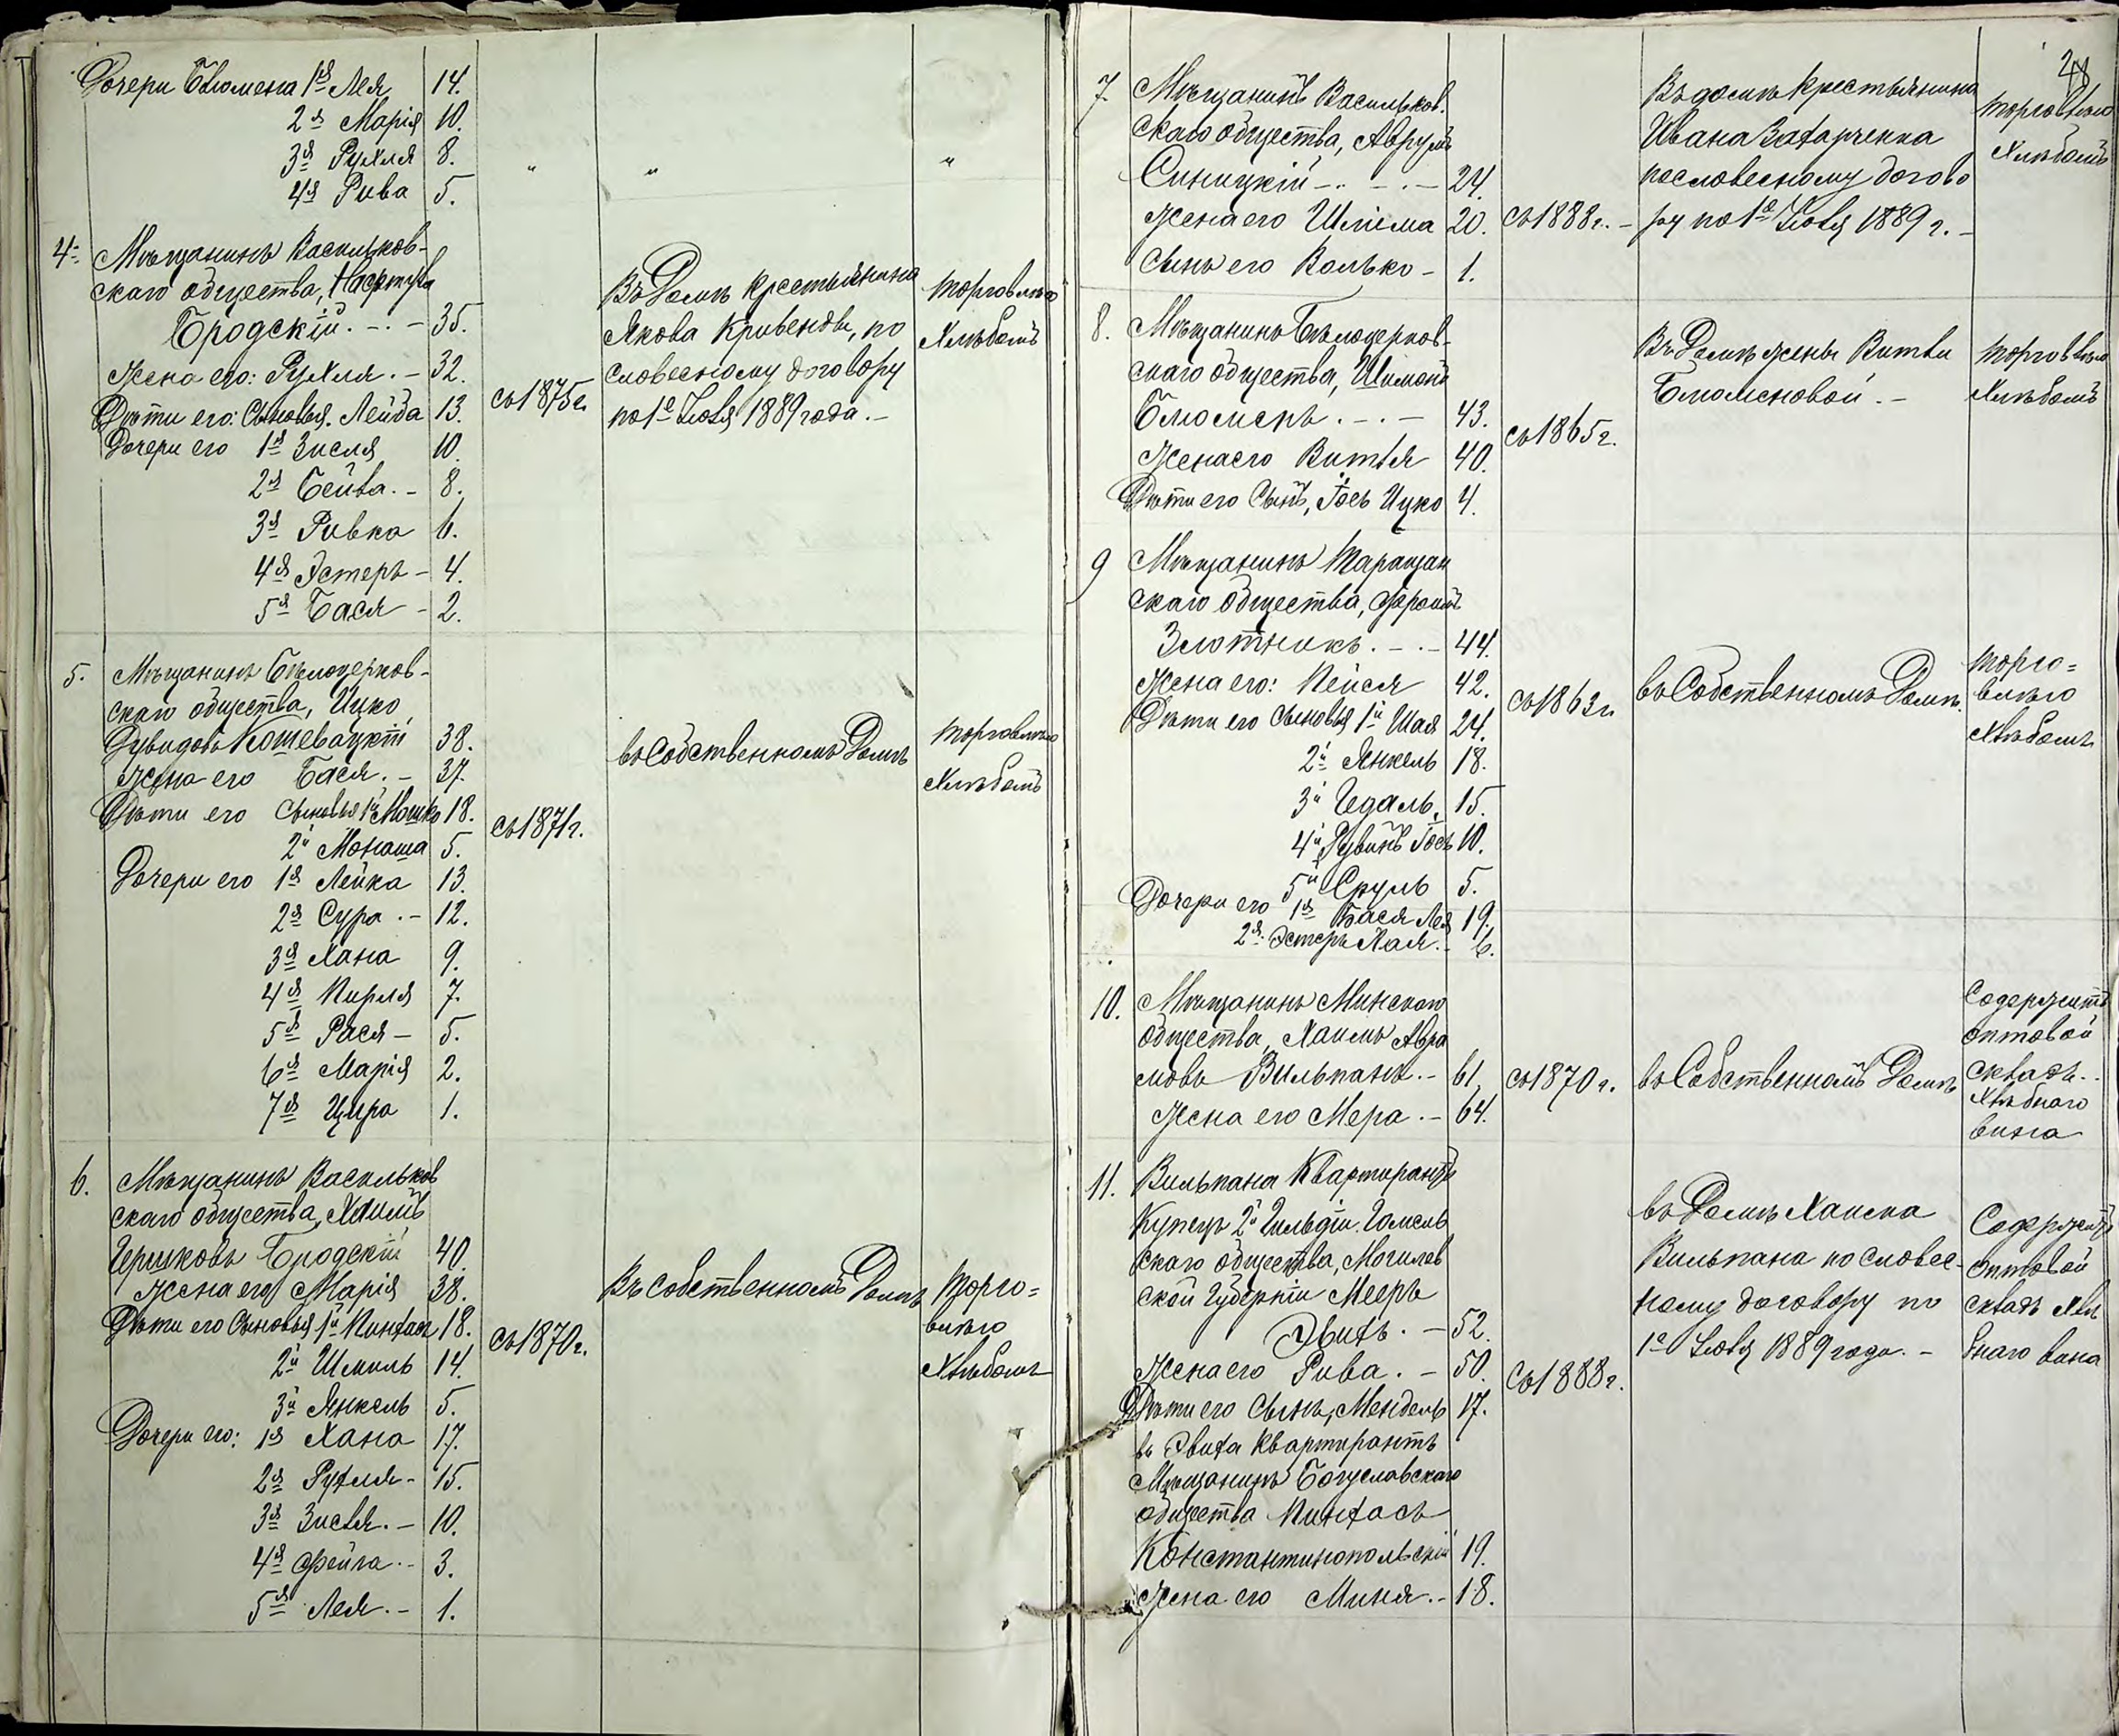 Дочери Блюмена 1я Лея 14.
2я Марія 10.
3я Рухля 8. " " "
4я Рива 5.
4. Мѣщанинъ Васильков-
скаго общества,
Бродскій. - . - 35.
Жена его: Рухля. - 32.
Дѣти его: Сыновья. Лейба 13.
Дочери его 1я Зисля 10.
2я Бейла. - 8.
3я Ривка 6.
4я Эстеръ - 4.
5я Бася - 2.
съ 1875 г.
Въ Домѣ крестьянина
Якова Кривенды, по
словесному договору
по 1е Іюля 1889 года. -
торговлею
Хлѣбомъ
5. Мѣщанинъ Бѣлоцерков-
скаго общества, Ицко
Дувидовъ Кошевацкій 38.
Жена его Бася. - 37.
Дѣти его Сыновья 1й Мошко 18.
2й Монаша 5.
Дочери его 1я Лейка 13.
2я Сура. - 12.
3я Хана 9.
4я Пирля 7.
5я Рася - 5.
6я Марія 2.
7я Цира 1.
съ 1871 г.
въ Собственномъ Домѣ
торговлею
Хлѣбомъ
6. Мѣщанинъ Васильков
скаго общества, Хаимъ
Гершковъ Бродскій 40.
Жена его Марія 38.
Дѣти его Сыновья 1й Пинхасъ 18.
2й Шмиль 14.
3й Янкель 5.
Дочери его: 1я Хана 17.
2я Рухля - 15.
3я Зисля. - 10.
4я Фейга. - 3.
5я Лея. - 1.
съ 1870 г.
Въ собственномъ Домѣ
Торго=
влею
Хлѣбомъ
28
7. Мѣщанинъ Васильков.
скаго общества, Аврумъ
Синицкій - . - . - 24.
Жена его Шлима 20.
Сынъ его Волько - 1.
съ 1888 г. -
Въ домѣ крестьянина
Ивана Захарченка
пословесному догово
ру по 1е Іюля 1889 г. -
торговлею
Хлѣбомъ
8. Мѣщанинъ Бѣлоцерков-
скаго общества, Шимонъ
Блюменъ. - . - 43.
Жена его Витля 40.
Дѣти его Сынъ, Іось Ицко 4.
съ 1865 г.
Въ Домѣ жены Витли
Блюменовой. -
торговлею
Хлѣбомъ
9 Мѣщанинъ Таращан
скаго общества, Фроимъ
Злотникъ. - . - 44.
Жена его: Пейся 42.
Дѣти его Сыновья 1й Шая 24.
2й Янкель 18.
3й Гедаль 15.
4й Рувинъ Іось 10.
5й Сруль 5.
Дочери его 1я Бася Лея 19.
2я. Эстеръ Хая. - 6.
съ 1863 г.
въ Собственномъ Домѣ.
торго=
влею
Хлѣбомъ
10. Мѣщанинъ Минскаго
общества, Хаимъ Авра
мовъ Вильпанъ. - 61.
Жена его Мера. - 64.
съ 1870 г.
въ Собственномъ Домѣ
Содержитъ
оптовой
складъ.
Хлѣбнаго
вина
11. Вильпана Квартирантъ
Купецъ 2й Гильдіи Гомель
скаго общества, Могилев
ской Губерніи Мееръ
Эвихъ. - 52.
Жена его Рива. - 50.
Дѣти его Сынъ, Мендель 17.
въ Эвиха квартирантъ
Мѣщанинъ Богуславскаго
общества Пинхасъ
Константинопольскій 19.
Жена его Миня. - 18.
съ 1888 г.
въ Домѣ Хаима
Вильпана по словес-
ному договору по
1е Іюля 1889 года. -
Содержитъ
оптовой
складъ хлѣ
бнаго вина